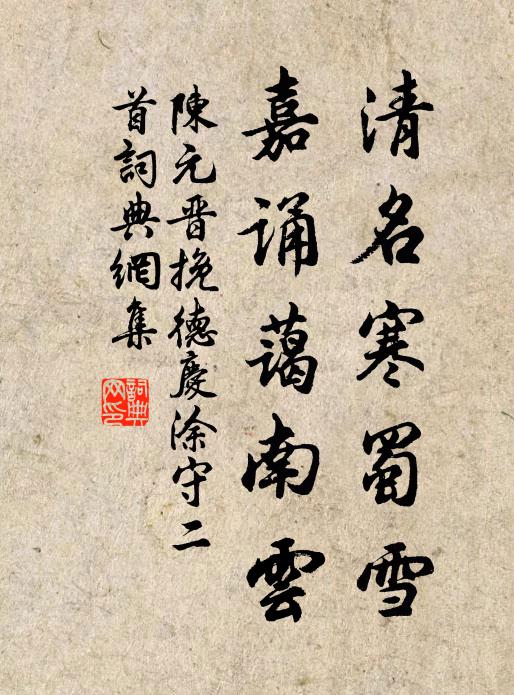 清名寒蜀雪
嘉誦藹南雲
陳元晋挽德慶涂守二
首詞典網集
詞典网印